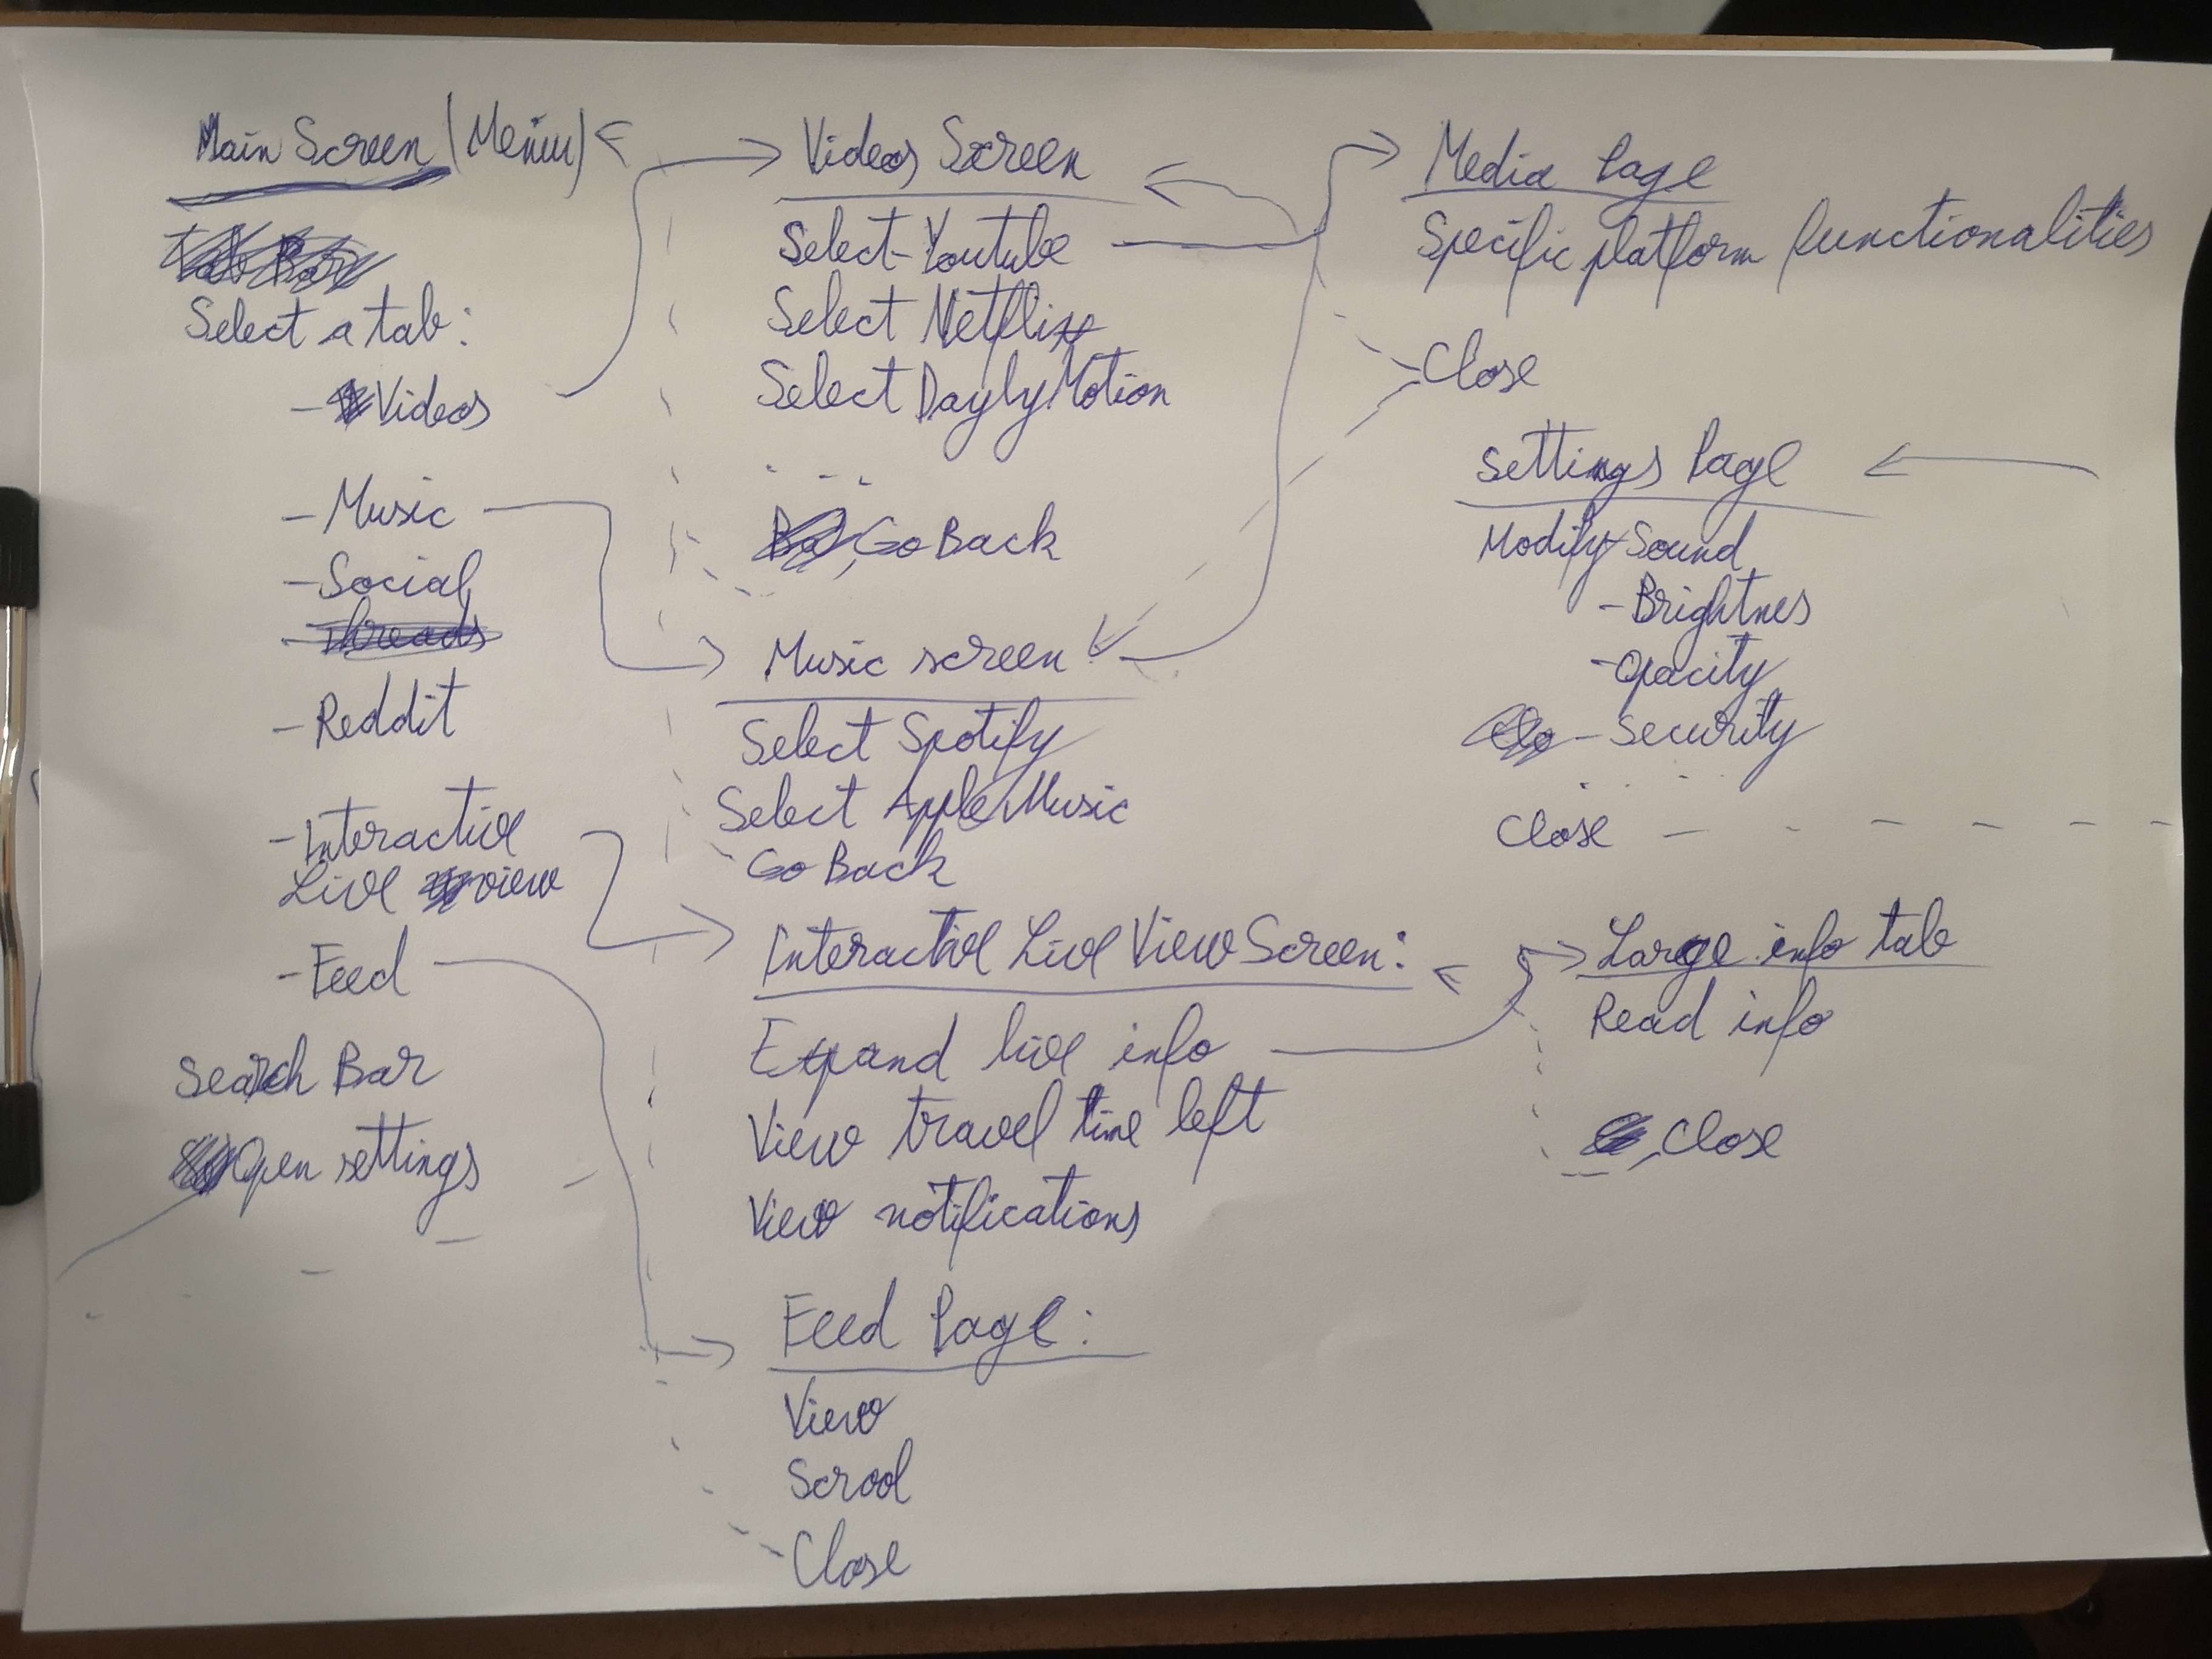 Main Screen (Meniu)
Tab Bar
Select a tab:
- Videos
- Music
- Social
- Threads
- Reddit
- Interactive
Live view
- Feed
Search Bar
Open settings
Videos Screen
Select Youtube
Select Netflix
Select DaylyMotion
...
Go Back
Music screen
Select Spotify
Select Apple Music
Go Back
Interactive Live View Screen:
Expand live info
View travel time left
View notifications
Feed Page:
View
Scrool
Close
Media Page
Specific platform functionalities
Close
Settings Page
Modify Sound
- Brightnes
- Opacity
- Security
...
Close
Large info tab
Read info
Close